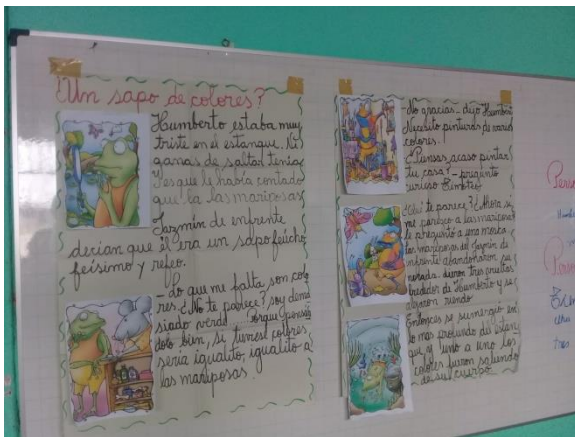 ¿Un sapo de colores?
Humberto estaba muy
triste en el estanque. Ni
ganas de saltar tenía
Y es que le había contado
que las mariposas
Jazmín de enfrente
decían que él era un sapo feúcho
feísimo y refeo.
- Lo que me falta son colo
res ¿No te parece? soy dema
siado verde. Porque pensán
dolo bien, si tuviese colores
sería igualito, igualito a
las mariposas.
- No gracias - dijo Humberto
Necesito pinturas de varios
colores.
¿Piensas acaso pintar
tu casa? - preguntó
curioso
¿Qué te parece? ¿Ahora sí
me parezco a las mariposas
le preguntó a una mosca
Las mariposas del Jazmín de
enfrente abandonaron su
dieron tres vueltas
alrededor de Humberto y se
riendo
Entonces se sumergió en
lo más profundo del estan
que y uno a uno los
colores fueron saliendo
de su cuerpo.